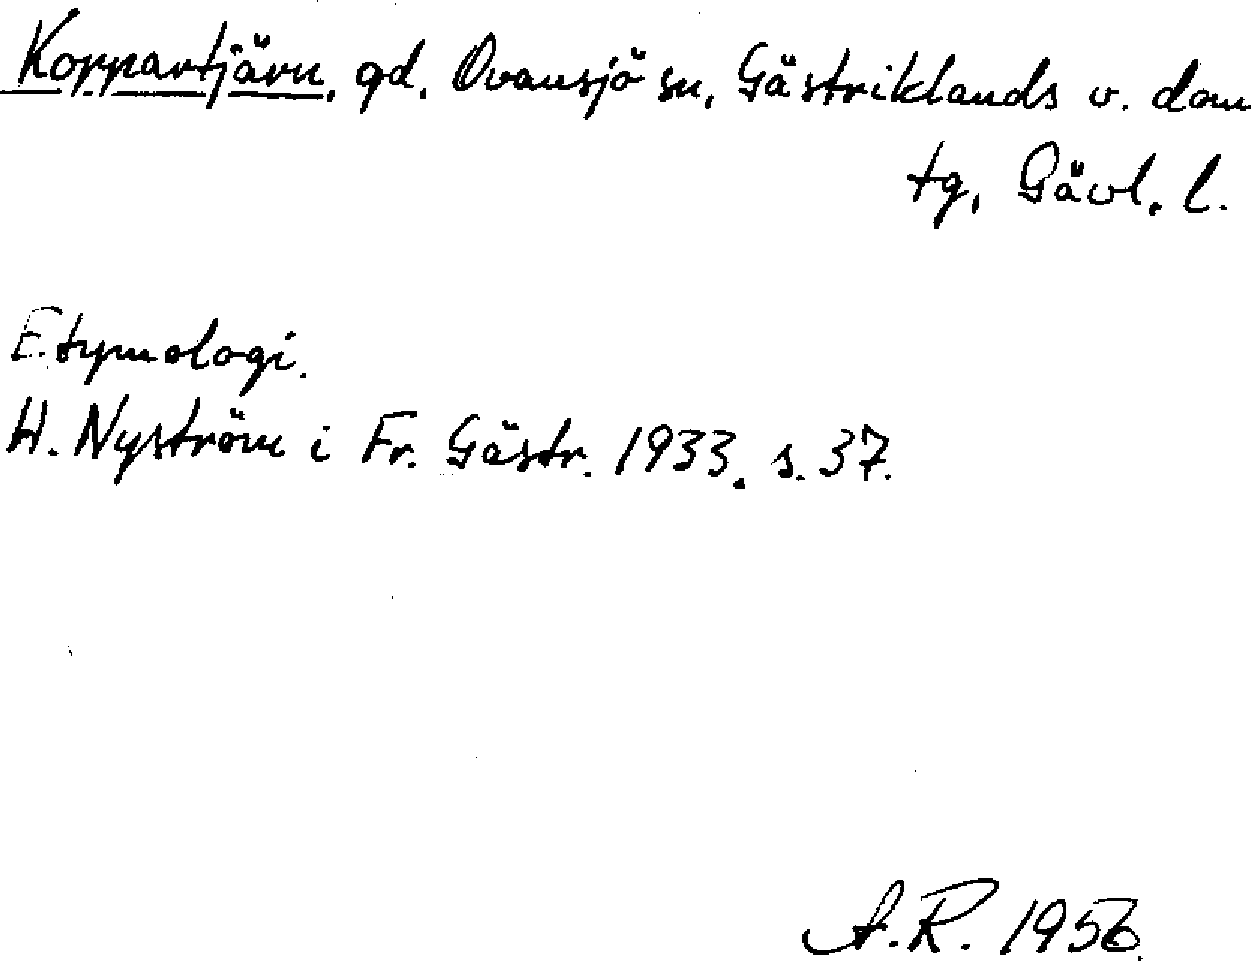 Koppartjärn, gd. Ovansjö sn, Gästriklands v. dom
tg, Gävl. l.
Etymologi.
H. Nyström i Fr. Gästr. 1933. s. 37.
A.R. 1956.